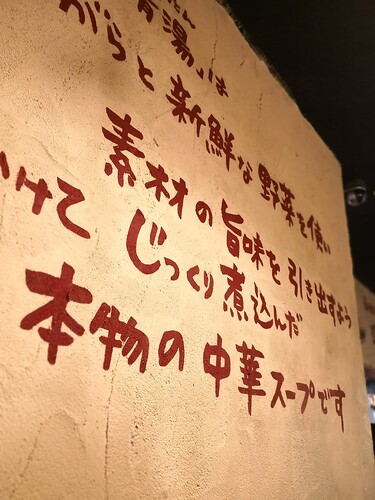 湯」は
がらと新鮮な野菜を使い
素材の旨味を引き出すよう
けてじっくり煮込んだ
本物の中華スープです